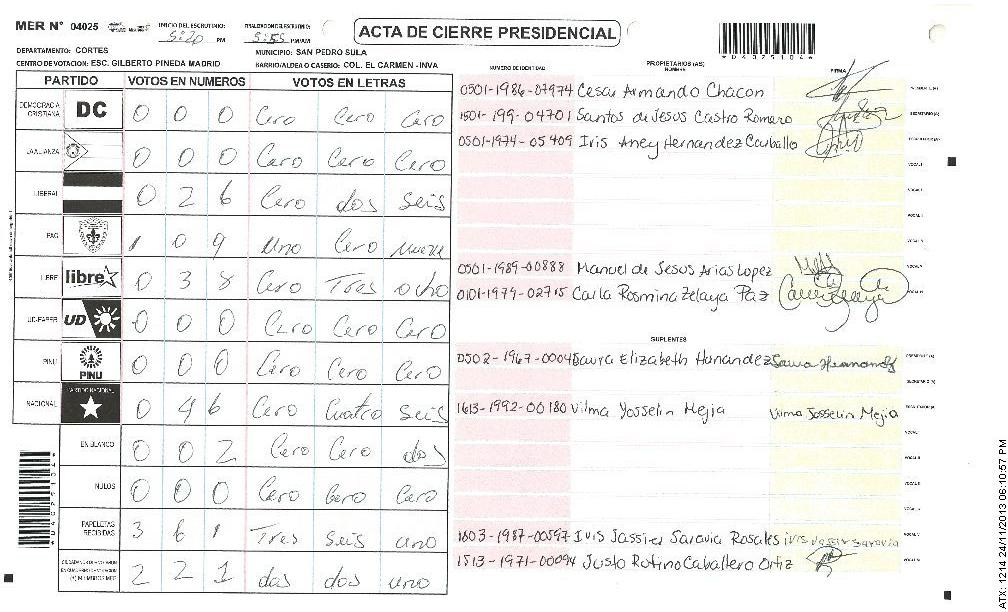 MER N° 04025 INICIO DEL ESCRUTINIO: 5:20 PM FINALIZACION DEL ESCRUTINIO: 5:55 PM/AM
ACTA DE CIERRE PRESIDENCIAL
*D4025104*
DEPARTAMENTO: CORTES MUNICIPIO: SAN PEDRO SULA
CENTRO DE VOTACION: ESC. GILBERTO PINEDA MADRID BARRIO/ALDEA O CASERIO: COL. EL CARMEN -INVA
PARTIDO VOTOS EN NUMEROS VOTOS EN LETRAS
DEMOCRACIA CRISTIANA DC 0 0 0 Cero Cero Cero
LA ALIANZA 0 0 0 Cero Cero Cero
LIBERAL 0 2 6 Cero dos seis
PAC 1 0 9 Uno Cero nueve
LIBRE libre 0 3 8 Cero Tres ocho
UD-FAPER UD 0 0 0 Cero Cero Cero
PINU PINU 0 0 0 Cero Cero Cero
NACIONAL PARTIDO NACIONAL 0 4 6 Cero Cuatro seis
EN BLANCO 0 0 2 Cero Cero dos
NULOS 0 0 0 Cero Cero Cero
PAPELETAS RECIBIDAS 3 6 1 Tres seis uno
2 2 1 dos dos uno
NUMERO DE IDENTIDAD PROPIETARIOS (AS) NOMBRE FIRMA
0501-1986-07974 Cesar Armando Chacon
1501-199-04701 Santos de Jesus Castro Romero
0501-1974-05409 Iris Aney Hernandez Carballo
0501-1989-00888 Manuel de Jesus Arias Lopez
0101-1979-02715 Carla Rosmina Zelaya Paz
SUPLENTES
0502-1967-0004 Saura Elizabeth Hernandez Saura Hernandez
1613-1992-00180 Vilma Yosselin Mejia Vilma Josselin Mejia
1603-1987-00597 Ivis Jassire Saravia Rosales
1513-1971-00094 Justo Rufino Caballero Ortiz
ATX: 1214-24/11/2013 06:10:57 PM